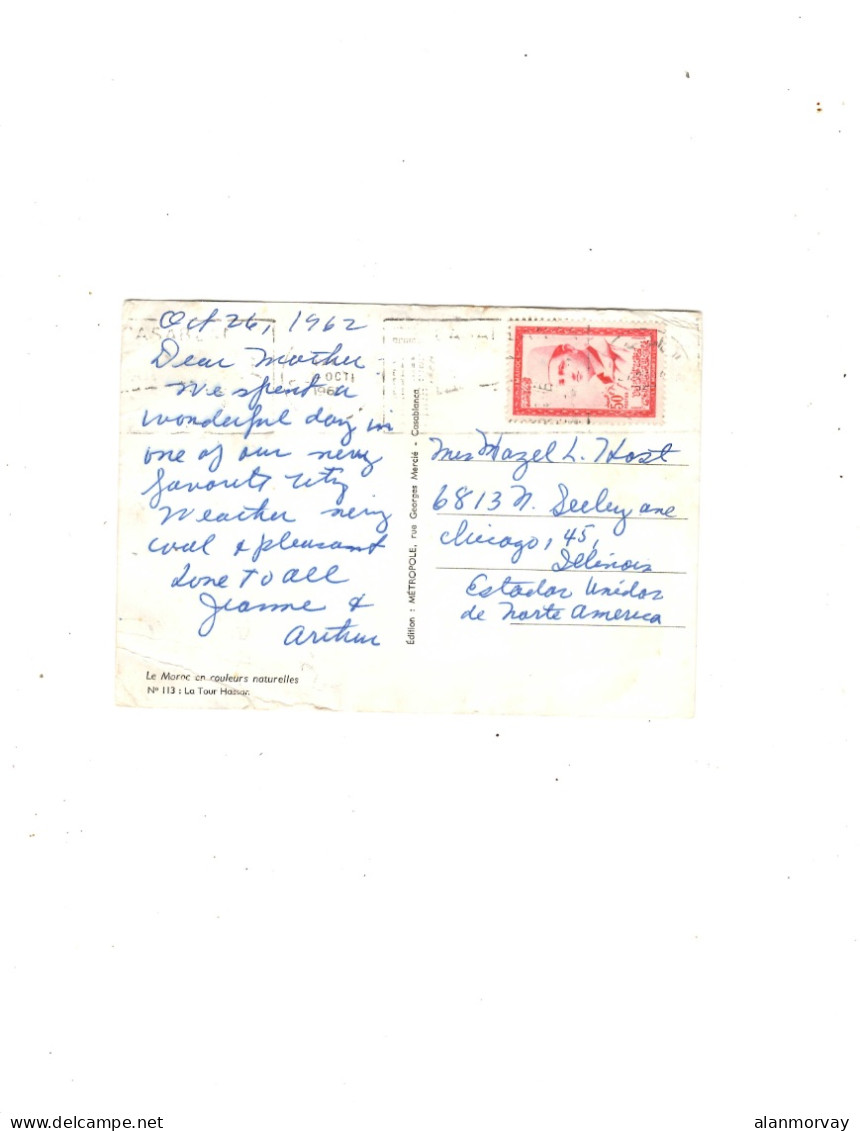 Oct 26, 1962
Dear Mother
We spent a
wonderful day in
one of our very
favorite city
Weather very
cool & pleasant
Love to all
Jeanne &
Arthur
Le Maroc en couleurs naturelles
N° 113 : La Tour Hassan
Édition : MÉTROPOLE, rue Georges Mercié - Casablanca
OCT
Mrs Hazel L. Host
6813 N. Seeley ave
Chicago, 45,
Illinois
Estados Unidos
de Norte America
alanmorvay
delcampe.net